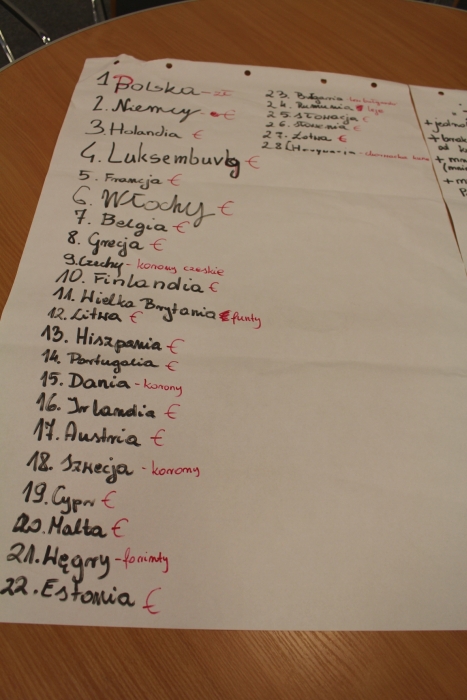 1 Polska - zł
2. Niemcy - €
3. Holandia €
4. Luksemburg €
5. Francja €
6. Włochy €
7. Belgia €
8. Grecja €
9. Czechy - korony czeskie
10. Finlandia €
11. Wielka Brytania funty
12. Litwa €
13. Hiszpania €
14. Portugalia €
15. Dania - korony
16. Irlandia €
17. Austria €
18. Szwecja - korony
19. Cypr €
20. Malta €
21. Węgry - forinty
22. Estonia €
23. Bułgaria - lew
24. Rumunia leje
25. Słowacja €
26. Słowenia €
27. Łotwa €
28 Chorwacja - chorwacka kuna
+ jedno
+ brak
od
+ m
+ m